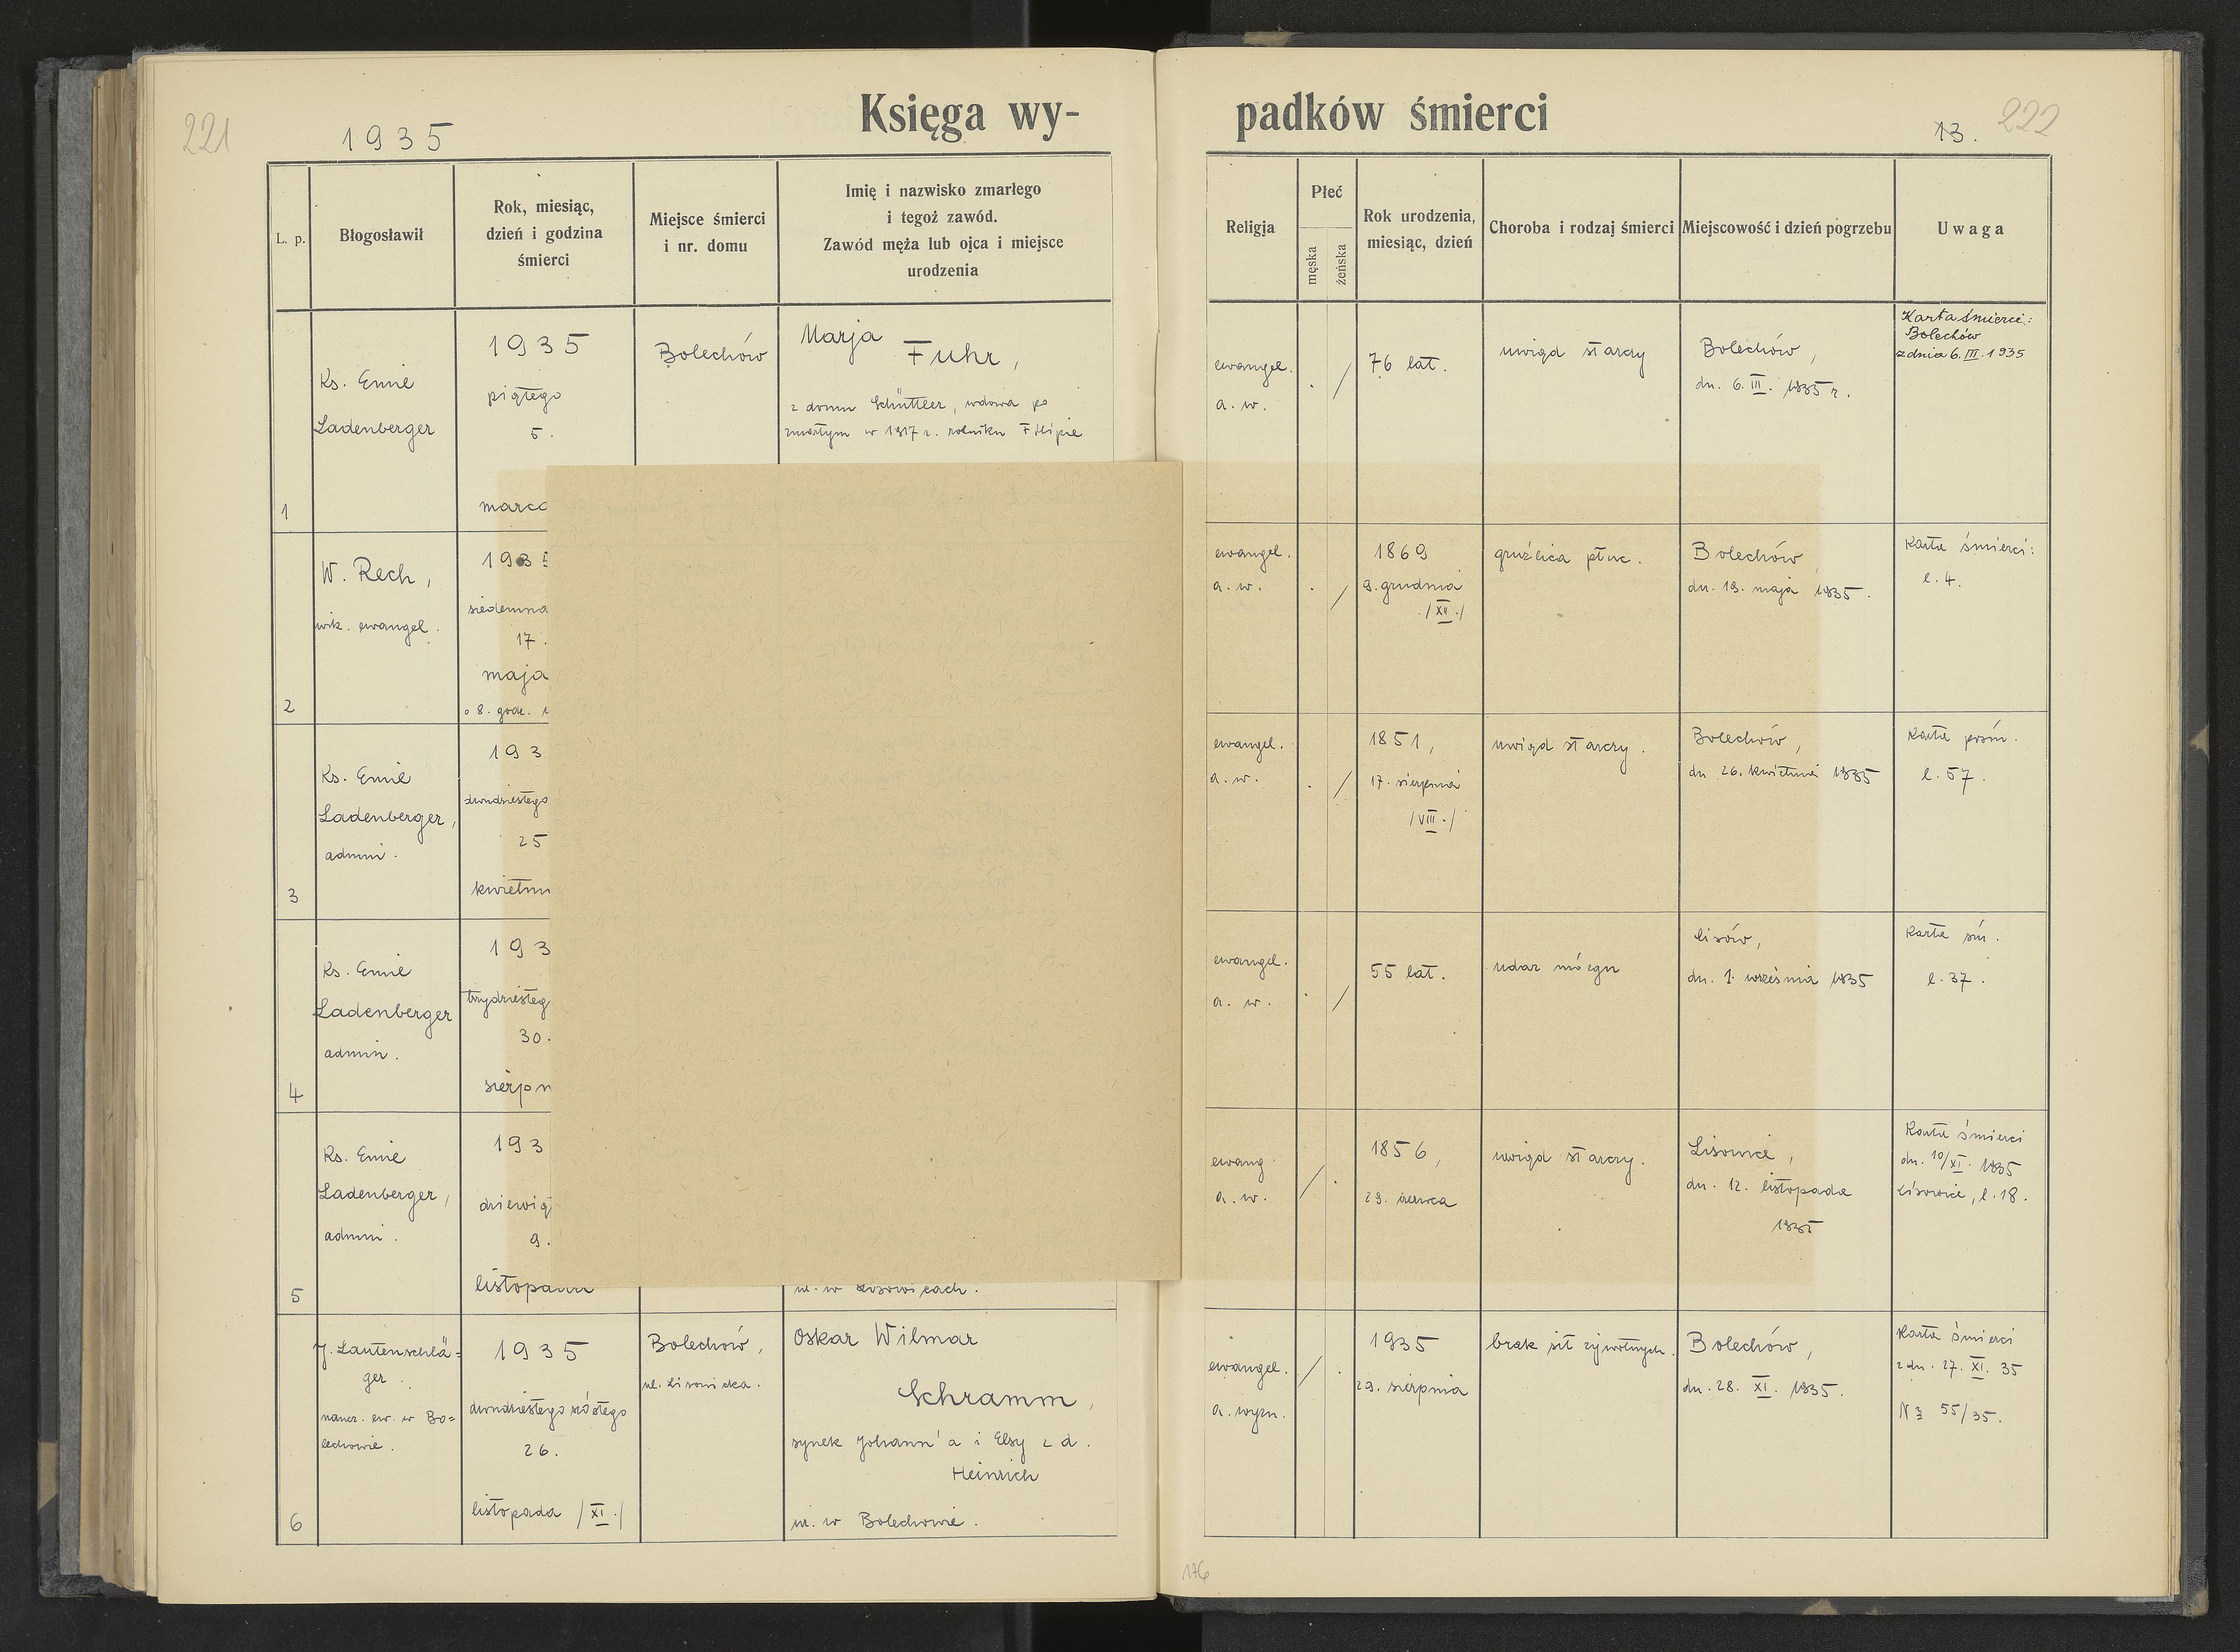 221
1935
Księga wy-
padków śmierci
13.
222
L. p.
Błogosławił
Rok, miesiąc,
dzień i godzina
śmierci
Miejsce śmierci
i nr. domu
Imię i nazwisko zmarłego
i tegoż zawód.
Zawód męża lub ojca i miejsce
urodzenia
Religja
Płeć
męska
żeńska
Rok urodzenia,
miesiąc, dzień
Choroba i rodzaj śmierci
Miejscowość i dzień pogrzebu
Uwaga
1
Ks. Emil
Ladenberger
1935
piątego
5.
marca
Bolechów
Marja
Fuhr,
z domu Schüttler, wdowa po
zmarłym w 1917 r. rolniku Filipie
ewangel.
a. w.
. /
76 lat.
uwiąd starczy
Bolechów,
dn. 6. III. 1935 r.
Karta śmierci:
Bolechów
z dnia 6. III. 1935
2
W. Rech,
wik. ewangel.
1935
siedemna
17.
maja
o 8. godz.
ewangel.
a. w.
. /
1869
9. grudnia
/XII./
gruźlica płuc.
Bolechów,
dn. 19. maja 1935.
Karta śmierci:
l. 4.
3
Ks. Emil
Ladenberger,
admin.
193
dwudziestego
25
kwietni
ewangel.
a. w.
. /
1851,
17. sierpnia
/VIII./
uwiąd starczy.
Bolechów,
dn. 26. kwietnia 1935
Karta pośm.
l. 57.
4
Ks. Emil
Ladenberger
admin.
193
trzydziesteg
30.
sierpn
ewangel.
a. w.
. /
55 lat.
udar mózgu
Lisów,
dn. 1. września 1935
Karta śm.
l. 37.
5
Ks. Emil
Ladenberger,
admin.
193
dziewią
9.
listopada
ur. w Lisowicach.
ewang.
a. w.
/ .
1856,
29. czerwca
uwiąd starczy.
Lisowice,
dn. 12. listopada
1935
Karta śmierci
dn. 10/XI. 1935
Lisowice, l. 18.
6
J. Lautenschlä=
ger
naucz. ew. w Bo=
lechowie.
1935
dwudziestego szóstego
26.
listopada /XI./
Bolechów,
ul. Lisowicka.
Oskar Wilmar
Schramm,
synek Johann'a i Elsy z d.
Heinrich
ur. w Bolechowie.
ewangel.
a. wyzn.
/ .
1935
29. sierpnia
brak sił żywotnych.
Bolechów,
dn. 28. XI. 1935.
Karta śmierci
z dn. 27. XI. 35
55/35.
176